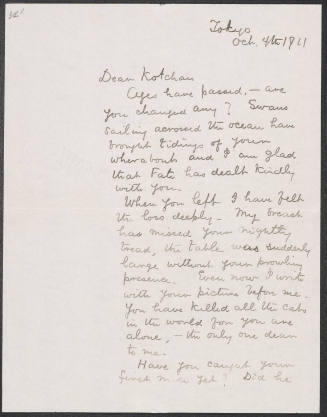 Tokyo
Oct. 4th 1911
Dear Kotchan
Ages have passed, — are
you changed any? Swans
sailing acrossed the ocean have
brought tidings of your
whereabouts and I am glad
that Fate has dealt kindly
with you.
When you left I have felt
the loss deeply — My breast
has missed your nightly
tread, the table was suddenly
large without your prowling
presence. Even now I write
with your picture before me.
You have killed all the cats
in the world for you are
alone, — the only one dear
to me.
Have you caught your
first mice yet? Did he